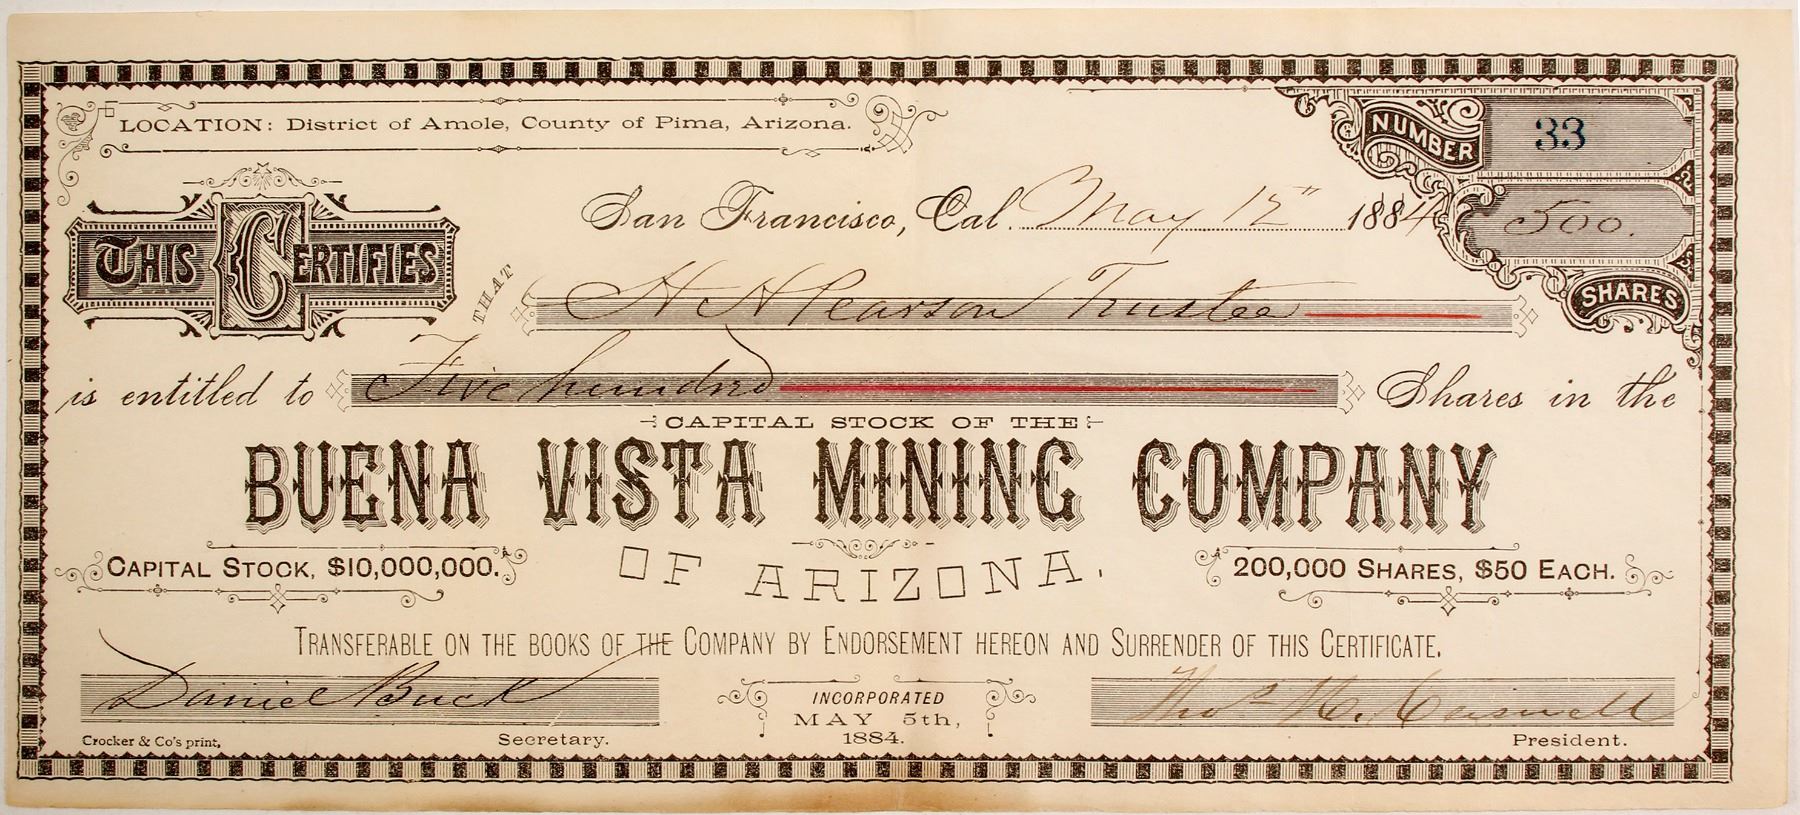 LOCATION: District of Amole, County of Pima, Arizona.
NUMBER 33
THIS CERTIFIES
San Francisco, Cal. May 12" 1884
500.
SHARES
THAT H N Pearson Trustee
is entitled to Five hundrd Shares in the
CAPITAL STOCK OF THE
BUENA VISTA MINING COMPANY
OF ARIZONA.
CAPITAL STOCK, $10,000,000.
200,000 SHARES, $50 EACH.
TRANSFERABLE ON THE BOOKS OF THE COMPANY BY ENDORSEMENT HEREON AND SURRENDER OF THIS CERTIFICATE.
Daniel Buck
Thos H. Caswell
INCORPORATED
MAY 5th,
1884.
Crocker & Co's print,
Secretary.
President.